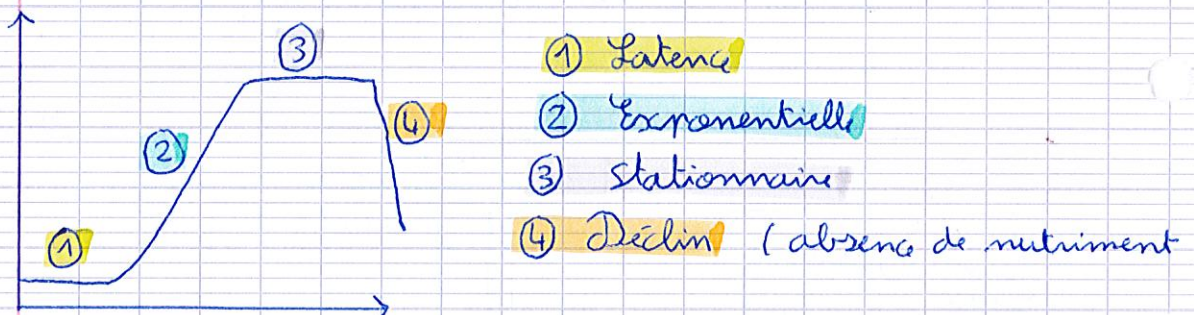 ③
① Latence
④
② Exponentielle
②
③ Stationnaire
①
④ Déclin (absence de nutriment